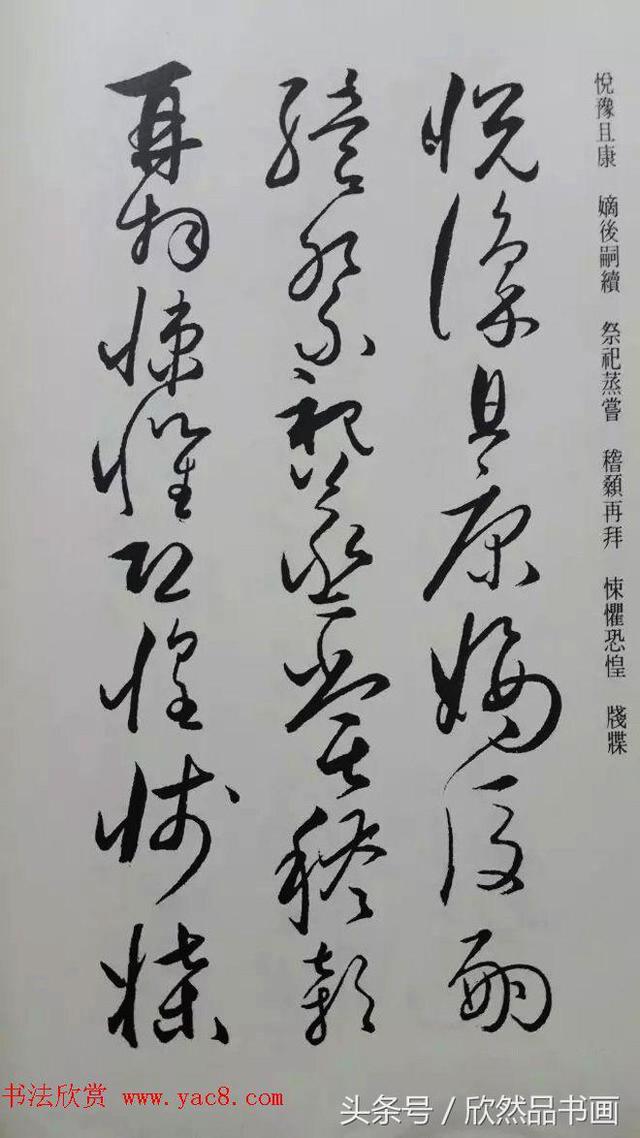 悅豫且康　嫡後嗣續　祭祀蒸嘗　稽顙再拜　悚懼恐惶　牋牒
悅豫且康嫡後嗣
續祭祀蒸嘗稽顙
再拜悚懼恐惶牋牒
书法欣赏 www.yac8.com
头条号／欣然品书画